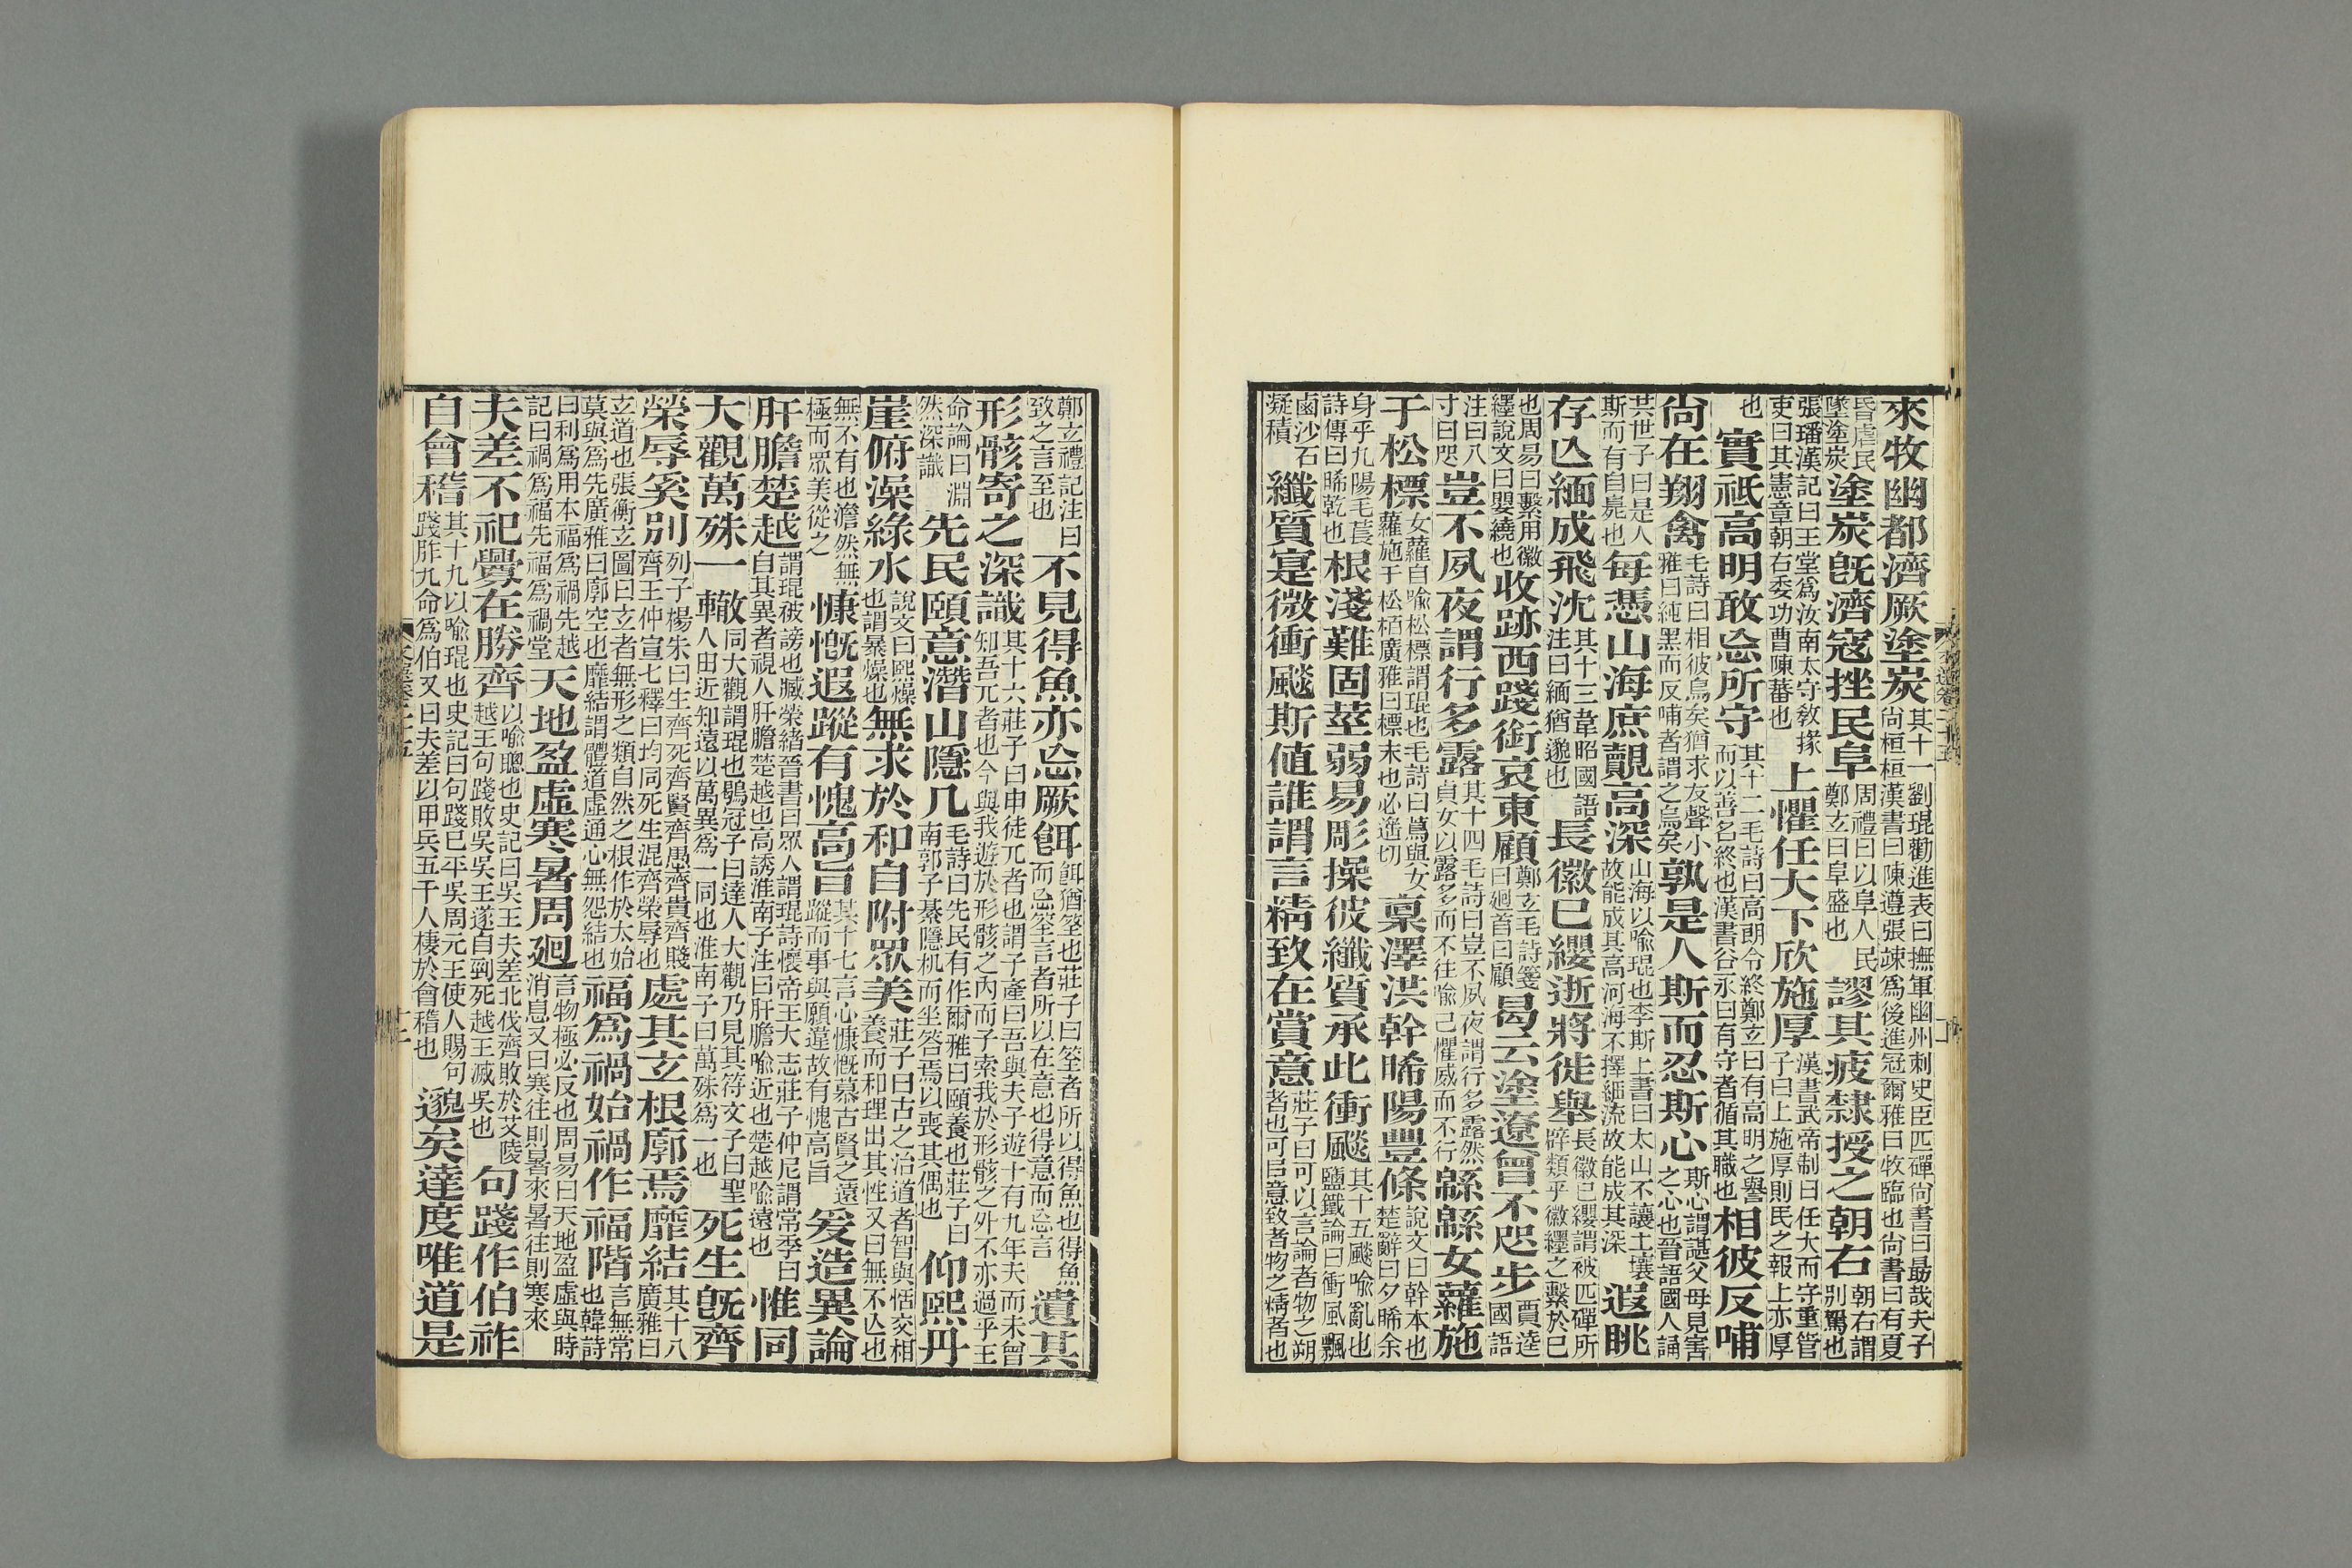 來牧幽都濟厥塗炭其十一劉琨勸進表曰撫軍幽州刺史臣匹磾尙書曰勗哉夫子尙桓桓漢書曰陳遵張竦爲後進冠爾雅曰牧臨也尙書曰有夏
昬虐民墜塗炭塗炭旣濟寇挫民阜周禮曰以阜人民鄭玄曰阜盛也謬其疲隸授之朝右朝右謂別駕也
張璠漢記曰王堂爲汝南太守敎掾吏曰其憲章朝右委功曹陳蕃也上懼任大下欣施厚漢書武帝制曰任大而守重管子曰上施厚則民之報上亦厚
也實祗高明敢忘所守其十二毛詩曰高朗令終鄭玄曰有高明之譽而以善名終也漢書谷永曰有守者循其職也相彼反哺
尙在翔禽毛詩曰相彼鳥矣猶求友聲小雅曰純黑而反哺者謂之烏矣孰是人斯而忍斯心斯心謂諶父母見害之心也晉語國人誦
共世子曰是人斯而有自毙也每憑山海庶覿高深山海以喻琨也李斯上書曰太山不讓土壤故能成其高河海不擇細流故能成其深遐眺
存亾緬成飛沈其十三韋昭國語注曰緬猶邈也長徽已纓逝將徙舉長徽已纓謂被匹磾所辟類乎徽纆之繫於己
也周易曰繫用徽纆說文曰嬰繞也收跡西踐銜哀東顧鄭玄毛詩箋曰廻首曰顧曷云塗遼曾不咫步賈逵國語
注曰八寸曰咫豈不夙夜謂行多露其十四毛詩曰豈不夙夜謂行多露然貞女以露多而不往喻己懼威而不行緜緜女蘿施
于松標女蘿自喻松標謂琨也毛詩曰蔦與女蘿施于松栢廣雅曰標末也必遙切稟澤洪幹晞陽豐條說文曰幹本也楚辭曰夕晞余
身乎九陽毛萇詩傳曰晞乾也根淺難固莖弱易彫操彼纖質承此衝飈其十五飈喻亂也鹽鐵論曰衝風飄
鹵沙石凝積纖質寔微衝飈斯値誰謂言精致在賞意莊子曰可以言論者物之朔者也可㠯意致者物之精者也
鄭玄禮記注曰致之言至也不見得魚亦忘厥餌餌猶筌也莊子曰筌者所以得魚也得魚而忘筌言者所以在意也得意而忘言遺其
形骸寄之深識其十六莊子曰申徒兀者也謂子產曰吾與夫子遊十有九年夫而未曾知吾兀者也今與我遊於形骸之内而子索我於形骸之外不亦過乎王
命論曰淵然深識先民頤意潛山隱几毛詩曰先民有作爾雅曰頤養也莊子曰南郭子綦隱机而坐荅焉以喪其偶也仰熙丹
崖俯澡綠水說文曰熙燥也謂暴燥也無求於和自附眾美莊子曰古之治道者智與恬交相養而和理出其性又曰無不亾也
無不有也澹然無極而眾美從之慷慨遐蹤有愧高旨其十七言心慷慨慕古賢之遠蹤而事與願違故有愧高旨爰造異論
肝膽楚越謂琨被謗也臧榮緒晉書曰眾人謂琨詩懷帝王大志莊子仲尼謂常季曰自其異者視人肝膽楚越也高誘淮南子注曰肝膽喻近也楚越喻遠也惟同
大觀萬殊一轍同大觀謂琨也鶡冠子曰達人大觀乃見其符文子曰聖人由近知遠以萬異爲一同也淮南子曰萬殊爲一也死生旣齊
榮辱奚別列子楊朱曰生齊死齊賢齊愚齊貴齊賤齊王仲宣七釋曰均同死生混齊榮辱也處其玄根廓焉靡結其十八廣雅曰
立道也張衡玄圖曰玄者無形之類自然之根作於太始莫與爲先廣雅曰廓空也靡結謂體道虛通心無怨結也福爲禍始禍作福階言無常也韓詩
曰利爲用本福爲禍先越記曰禍爲福先福爲禍堂天地盈虛寒暑周廻言物極必反也周易曰天地盈虛與時消息又曰寒往則暑來暑往則寒來
夫差不祀釁在勝齊以喻聰也史記曰吳王夫差北伐齊敗於艾陵越王句踐敗吳吳王遂自剄死越王滅吳也句踐作伯祚
自會稽其十九以喻琨也史記曰句踐已平吳周元王使人賜句踐胙九命爲伯又曰夫差以甲兵五千人棲於會稽也邈矣達度唯道是